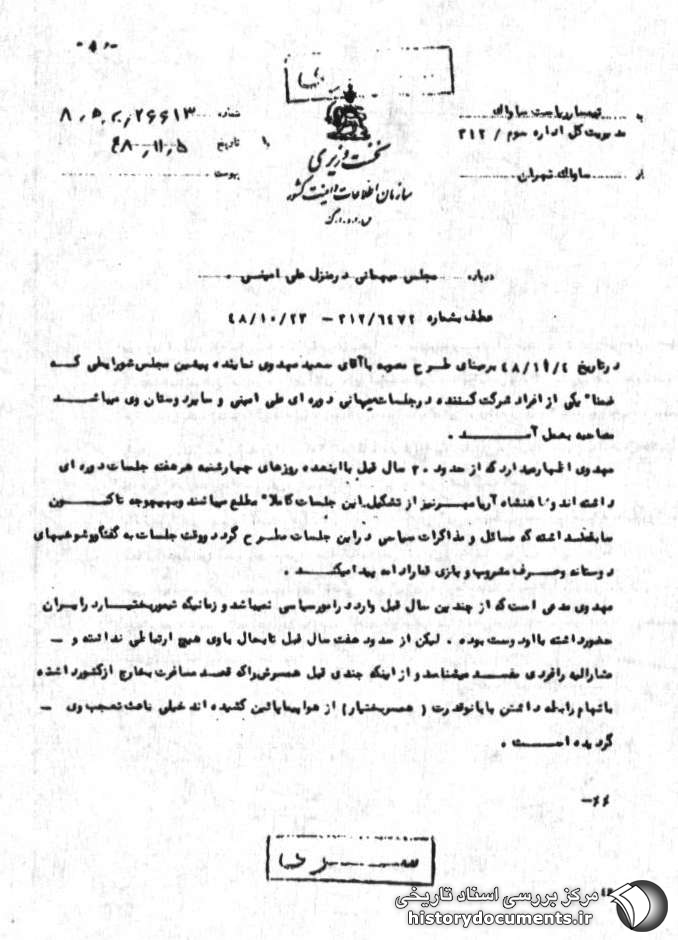 -۸-
سری
به تیمسار ریاست ساواک
مدیریت کل اداره سوم / ۳۱۲
از ساواک تهران
نخست وزیری
سازمان اطلاعات و امنیت کشور
س.ا.و.ا.ک
شماره ۲۶۶۱۳
تاریخ ۴۸٫۱۱٫۵
پیوست
درباره مجلس میهمانی در منزل علی امینی .
عطف بشماره ۳۱۲/۶۴۷۲ - ۴۸/۱۰/۲۳
در تاریخ ۴۸/۱۱/۴ بر مبنای طرح مصوبه با آقای سعید مهدوی نماینده پیشین مجلس شورایملی که
ضمنا" یکی از افراد شرکت کننده در جلسات میهمانی دوره ای علی امینی و سایر دوستان وی میباشد
مصاحبه بعمل آمد .
مهدوی اظهار میدارد که از حدود ۲۰ سال قبل با اینعده روزهای چهارشنبه هر هفته جلسات دوره ای
داشته اند و شاهنشاه آریامهر نیز از تشکیل این جلسات کاملا" مطلع میباشند و بهیچوجه تاکنون
سابقه نداشته که مسائل و مذاکرات سیاسی در این جلسات مطرح گردد و وقت جلسات به گفتگو و شوخیهای
دوستانه و صرف مشروب و بازی قمار ادامه پیدا میکند .
مهدوی مدعی است که از چندین سال قبل وارد در امور سیاسی نمیباشد و زمانیکه تیمور بختیار در ایران
حضور داشته با او دوست بوده . لیکن از حدود هفت سال قبل تابحال با وی هیچ ارتباطی نداشته و -
مشارالیه را فردی مفسد میشناسد و از اینکه چندی قبل همسرش را که قصد مسافرت بخارج از کشور داشته
باتهام رابطه داشتن با بانو قدرت ( همسر بختیار ) از هواپیما پائین کشیده اند خیلی باعث تعجب وی -
گردیده است .
سری
مرکز بررسی اسناد تاریخی
historydocuments.ir